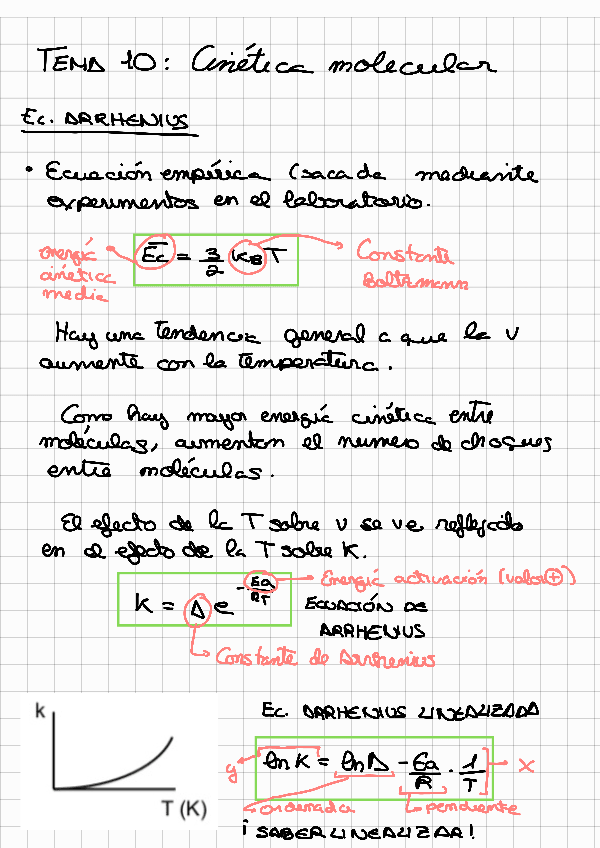 TEMA 10: Cinética molecular
Ec. ARRHENIUS
• Ecuación empírica (sacada mediante
experimentos en el laboratorio.
energía
cinética
media
Ēc = 3/2 kB T
Constante
Boltzmann
Hay una tendencia general a que la v
aumente con la temperatura.
Como hay mayor energía cinética entre
moléculas, aumentan el numero de choques
entre moléculas.
El efecto de la T sobre v se ve reflejado
en el efecto de la T sobre K.
K = A e^(-Ea/RT)
Energía activación (valor ⊕)
ECUACIÓN DE
ARRHENIUS
Constante de Arrhenius
k
T (K)
Ec. ARRHENIUS LINEALIZADA
y
ln K = ln A - Ea/R · 1/T
x
ordenada
pendiente
¡SABER LINEALIZAR!